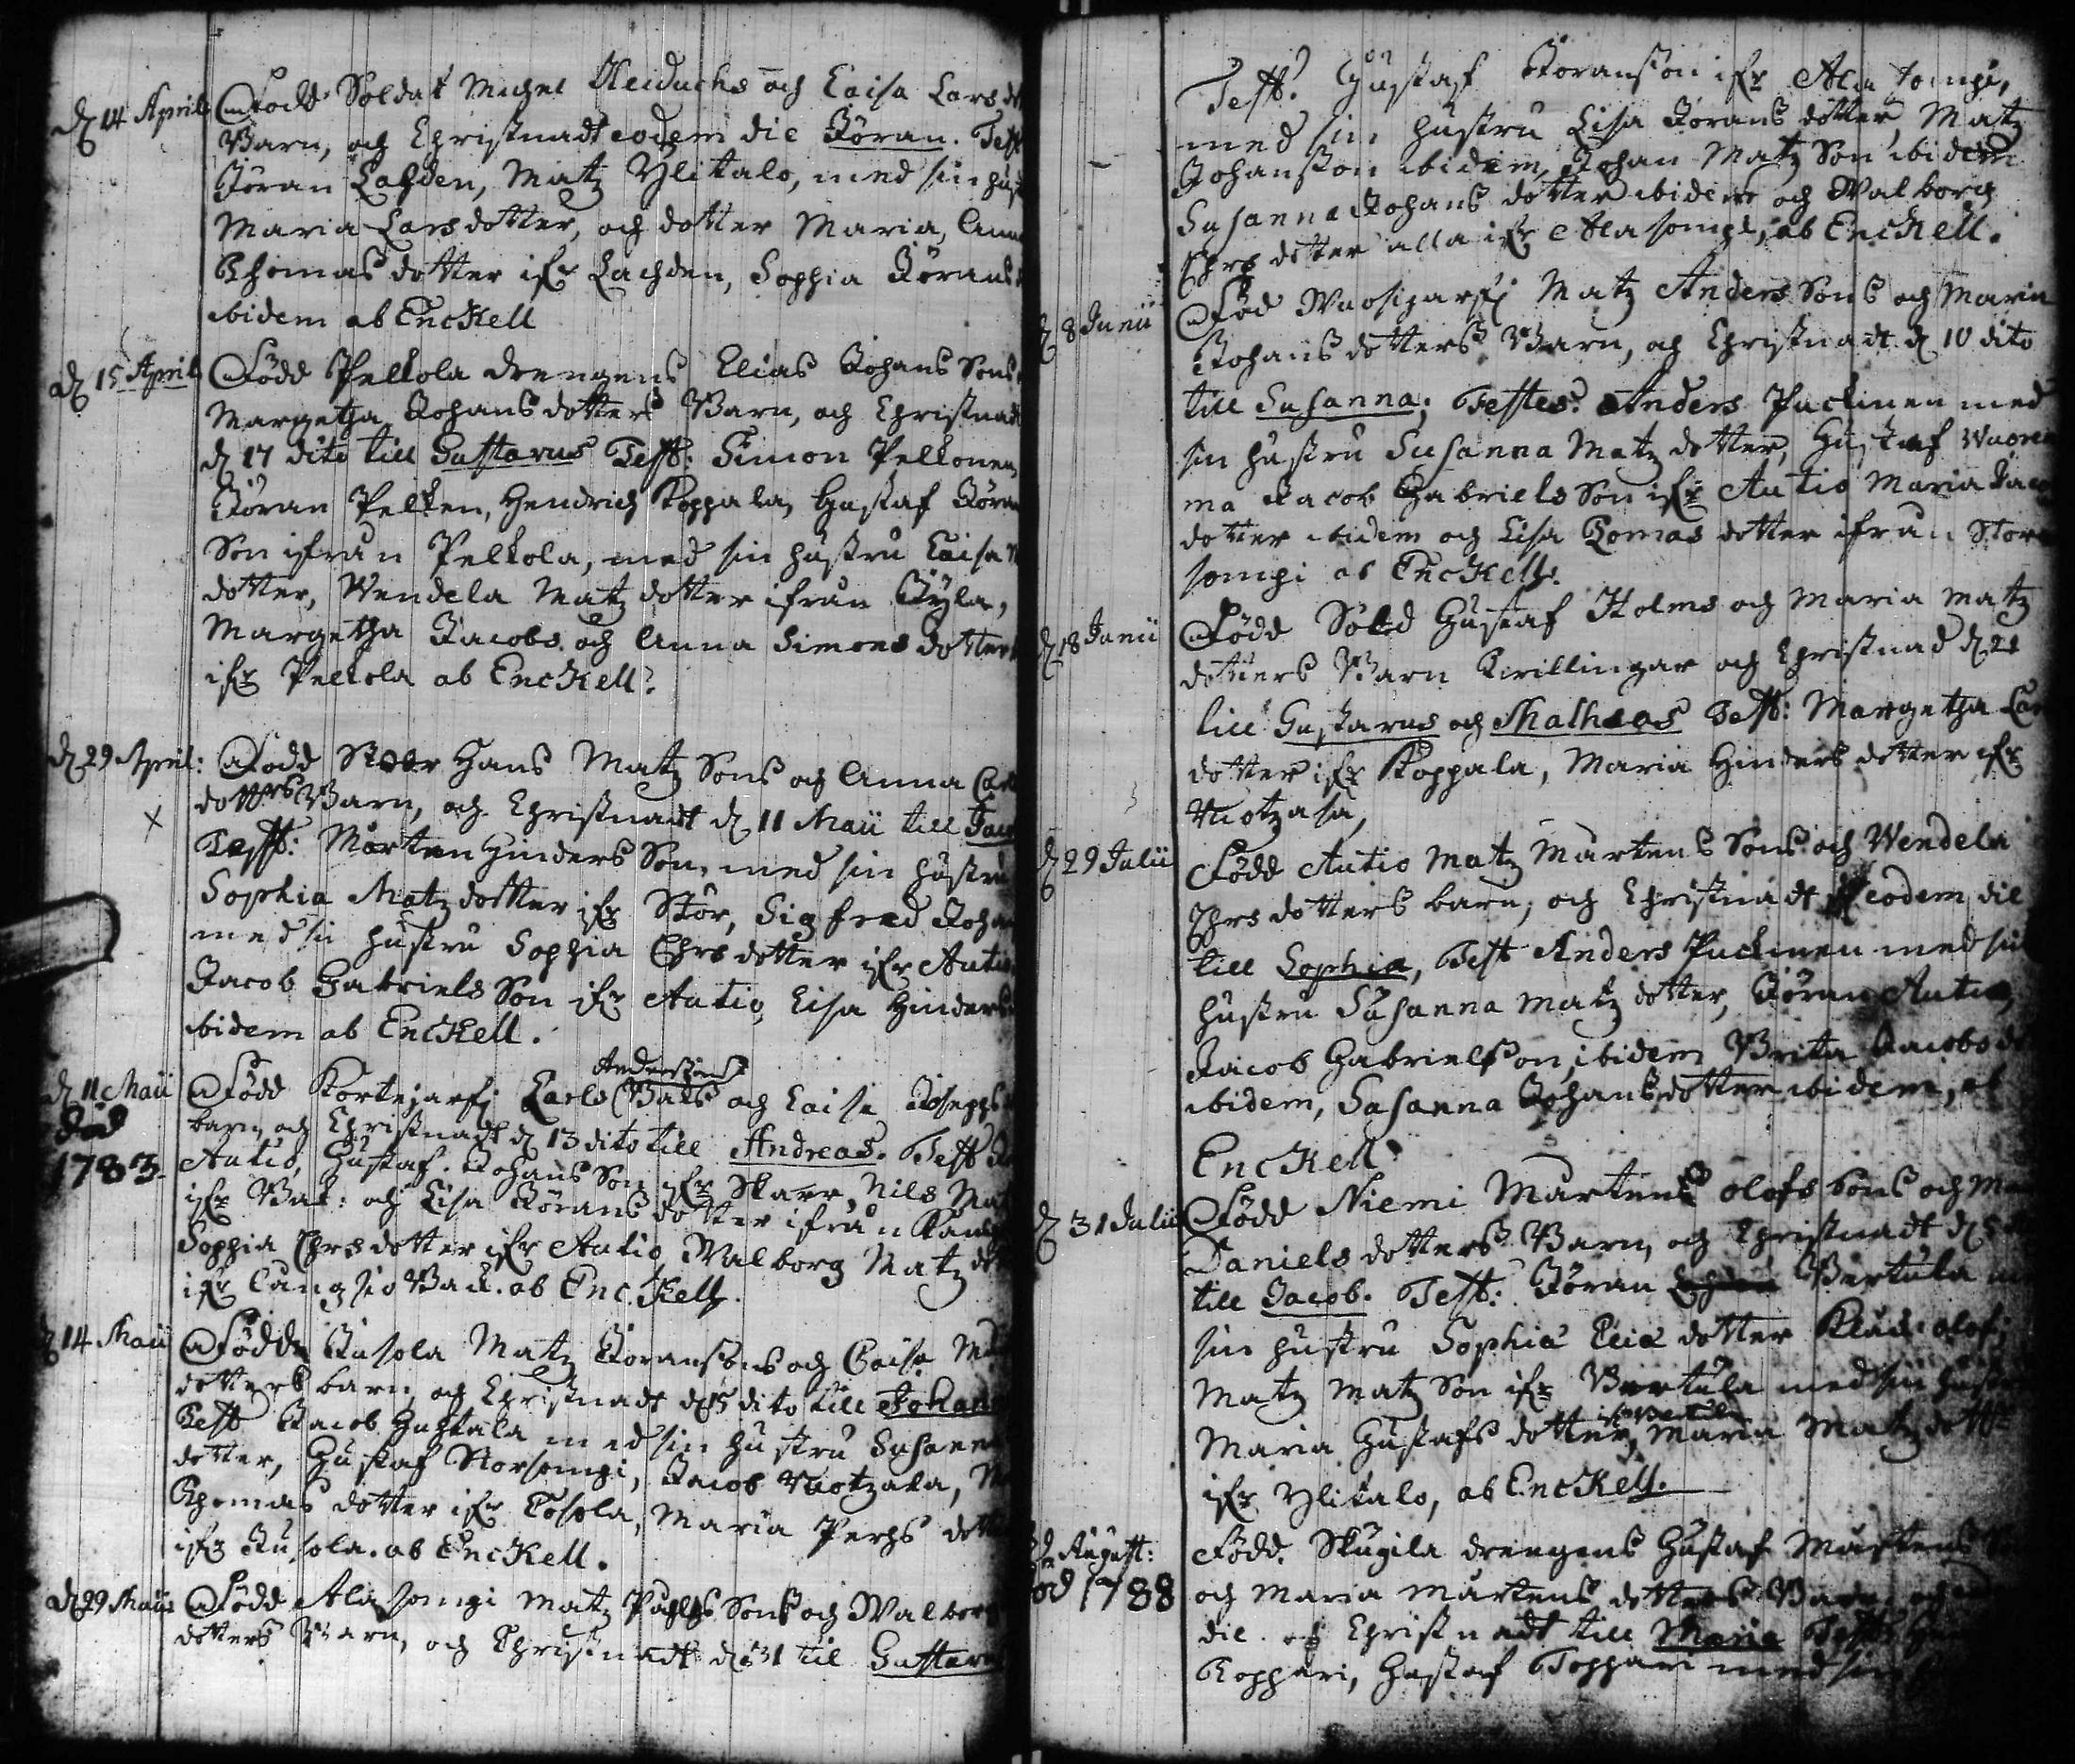 d 14 Aprilis Född Soldat Michel Heiduchs och Caisa Lars
Barn, och Christnadt eodem die Jöran. Test
Jöran Lahden, Matz Ylitalo, med sin hust
Maria Larsdotter, och dotter Maria, Anna
Thomas dotter ifr Lachden, Sophia Jörans
ibidem ab Enckell
d 15 April Född Peltola drengens Elias Johans Sons
Margetha Johans dotters Barn, och Christnadt
d 17 dito till Gustavus Test: Simon Peltonen,
Jöran Pelton, Hendrich Koppala, Gustaf Jöran
Son ifrån Peltola, med sin hustru Caisa
dotter, Wendela Matz dotter ifrån Kyla,
Margetha Jacobs och Anna Simons dotter
ifr Peltola ab Enckell.
d 29 April: Född Stoor Hans Matz Sons och Anna Carl
dotters Barn, och Christnadt d 11 Maii till Jaco
Test: Mårten Hinders Son, med sin hustru
Sophia Matz dotter ifr Stor, Sigfred Johan
med sin hustru Sophia Chrs dotter ifr Autio
Jacob Gabriels Son ifr Autio, Lisa Hinders
ibidem ab Enckell.
Anderssons
d 11 Maii Född Kortejarfj Carls Baks och Caisa Josephs
död barn, och Christnadt d 13 dito till Andreas. Test
1783. Autio, Gustaf Johans Son ifr Skarr, Nils Mat
ifr Bak: och Lisa Jörans dotter ifrån
Sophia Chrs dotter ifr Autio, Walborg Matz dot
ifr Långsio Back. ab Enckell.
d 14 Maii Född Jusola Matz Joransons och Caisa
dotters barn, och Christnadt d 15 dito till Johan
Test Jacob Huhtala med sin hustru Susanna
dotter, Gustaf Storsompi, Jacob Uotzala,
Thomas dotter ifr Tosola, Maria Pehrs dott
ifr Jusola. ab Enckell.
d 29 Maii Född Alasompi Matz Påhls Sons och Walborg
dotters Barn, och Christnadt d 31 til Gustavus
Test: Gustaf Joranson ifr Ala sompi,
med sin hustru Lisa Jorans dotter, Matz
Johanson ibidem, Johan Matz Son ibidem
Susanna Johans dotter ibidem och Walborg
Chrs dotter alla ifr Alasompi, ab Enckell.
d 8 Junii Född Wuosijarfj Matz Anders Sons och Maria
Johans dotters Barn, och Christnadt d 10 dito
till Susanna; Testes: Anders Puckinen med
sin hustru Susanna Matz dotter, Gustaf Wuoren
ma Jacob Gabriels Son ifr Autio Maria Jaco
dotter ibidem och Lisa Tomas dotter ifrån Stor
sompi ab Enckell.
d 18 Junii Född Sold Gustaf Holms och Maria Matz
dotters Barn Twillingar och Christnad d 21
till Gustavus och Matheas Test: Margetha Car
dotter ifr Koppala, Maria Hinders dotter ifr
Uotzala,
d 29 Julii Född Autio Matz Mårtens Sons och Wendela
Chrs dotters barn, och Christnadt eodem die
till Sophia, Test Anders Puckinen med sin
hustru Susanna Matz dotter, Jöran Autio,
Jacob Gabrielson, ibidem Brita Jacobs do
ibidem, Susanna Johans dotter ibidem, ab
Enckell
d 31 Julii Född Niemi Mårtens Olofs Sons och Ma
Daniels dotters Barn, och Christnadt d 5
till Jacob. Test: Jöran Bertula
sin hustru Sophia Elia dotter Olof,
Matz Matz Son ifr Bertula med sin hustru
ifr Bertula
Maria Gustafs dotter, Maria Matz dotter
ifr Ylitalo, ab Enckell.
August: Född Skugila drengens Gustaf Mårtens
död 1788 och Maria Mårtens dotters Barn,
die och Christnadt till Maria Test:
Toppari, Gustaf Toppari med sin